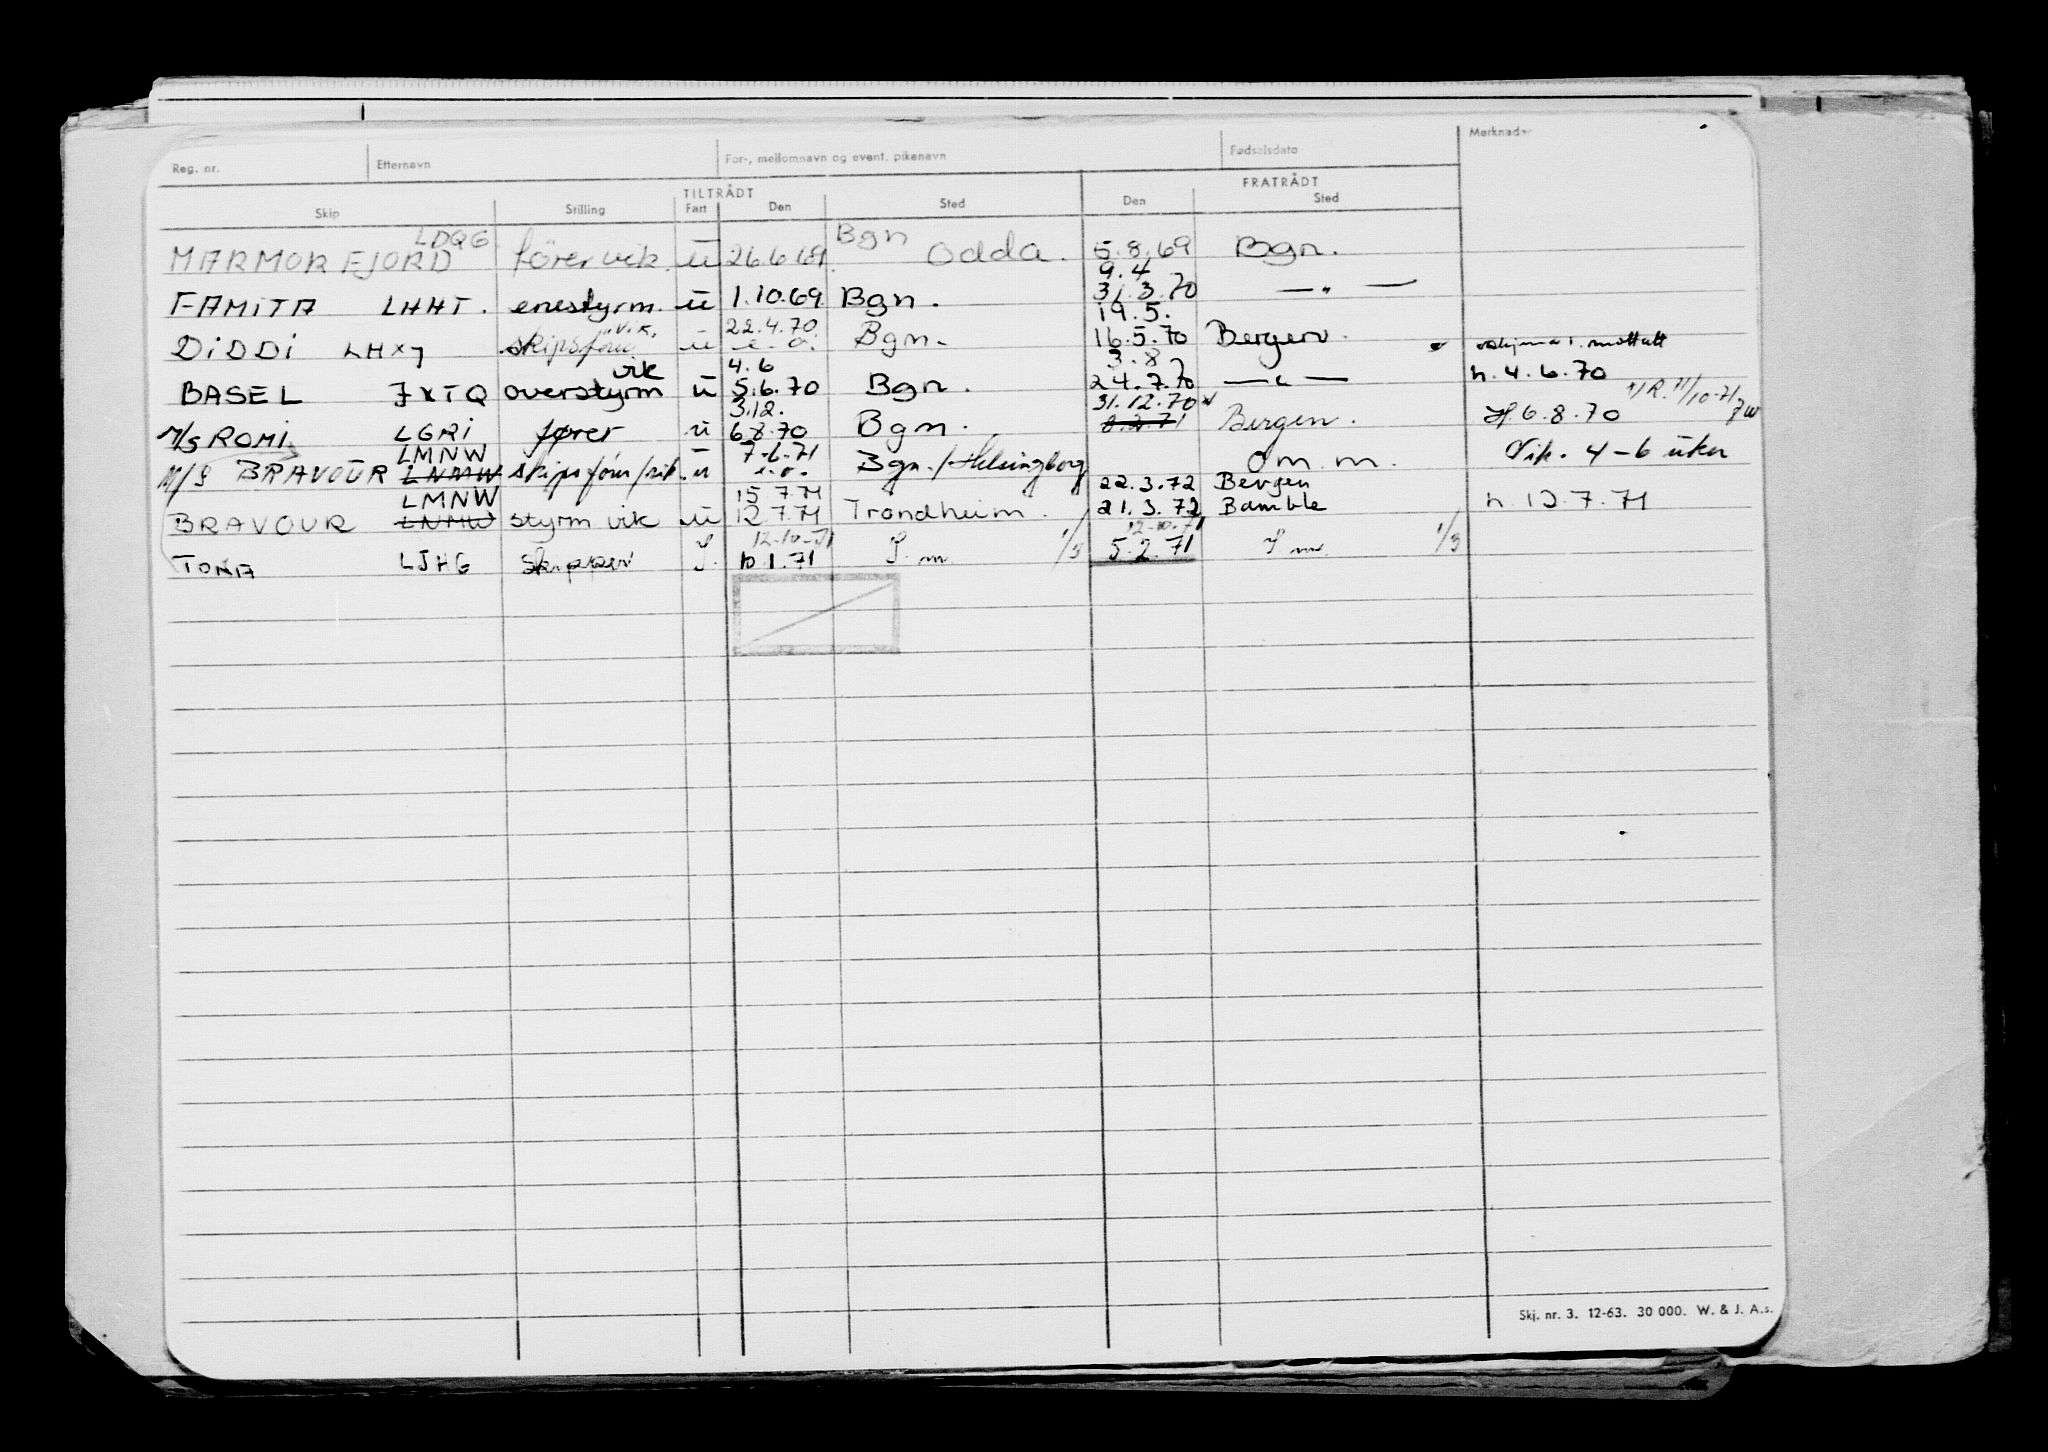 Reg. nr. Etternavn For-, mellomnavn og event. pikenavn Fødselsdato Merknader
TILTRÅDT FRATRÅDT
Skip Stilling Fart Den Sted Den Sted
LDQG Bgn
MARMORFJORD förer vik. u 26.6.69. Odda. 5.8.69 Bgn.
9.4
FAMITA LHHT. enestyrm. u 1.10.69 Bgn. 31.3.70 — " —
v.k. 22.4.70 19.5.
DIDDI LHXY skipsförer u Bgn. 16.5.70 Bergen. mottatt
vik 4.6 3.8
BASEL JXTQ overstyrm u 5.6.70 Bgn. 24.7.70 — " — h. 4.6.70
3.12. 31.12.70 x/R. 11/10-71
M/S ROMI LGRI fører u 6.8.70 Bgn. 8.2.71 Bergen. H. 6.8.70
LMNW 7.6.71
M/S BRAVOUR LNMW skipsförer/vik. u Bgn./Helsingborg Om.m. Vik. 4-6 uker
LMNW 15.7.71 22.3.72 Bergen
BRAVOUR LNMW styrm vik u 12.7.71 Trondheim. 21.3.72 Bamble h. 12.7.71
12-10-71 12-10-71
TONA LJHG Skipper 10.1.71 1/3 5.2.71 1/3
Skj. nr. 3. 12-63. 30 000. W. & J. A.s.